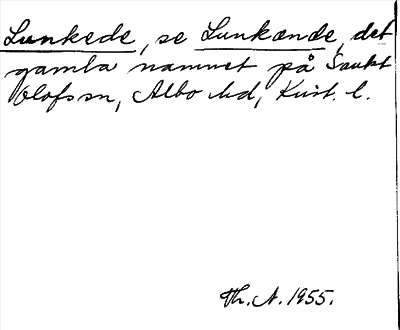 Lunkede, se Lunkande, det
gamla namnet på Sankt
Olofs sn, Albo hd, Krist. l.
Th. A. 1955.